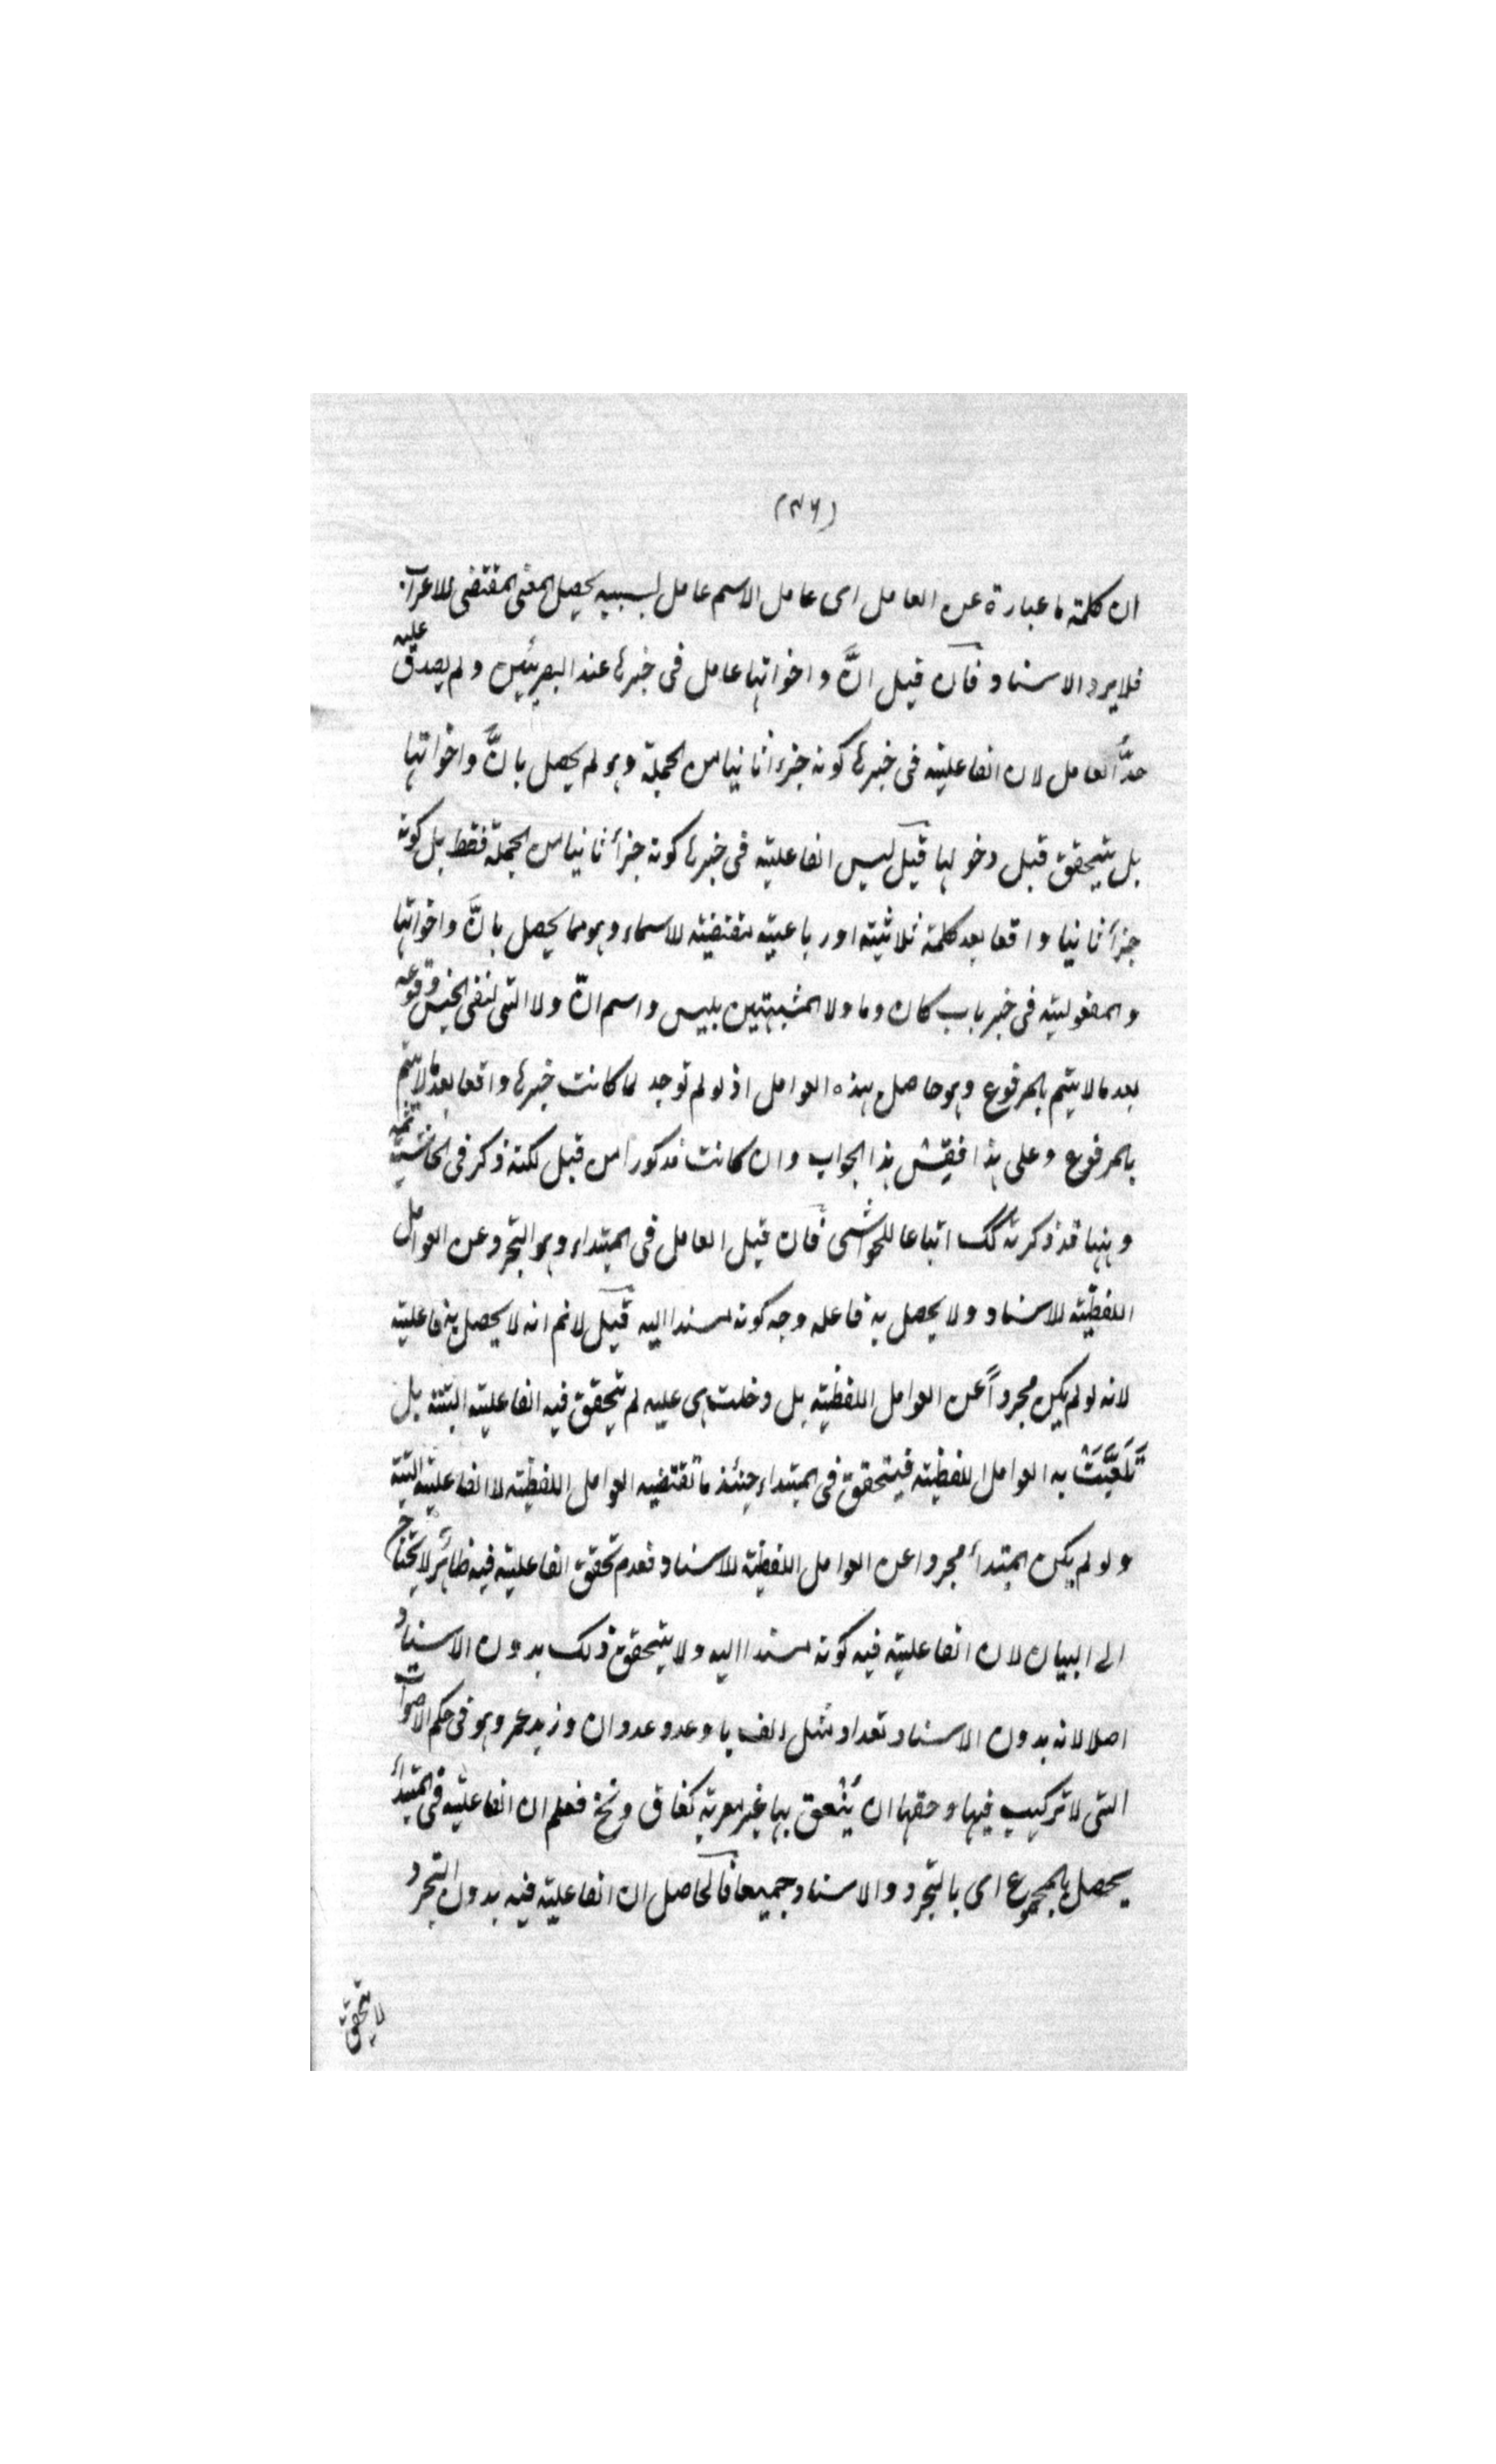 (٣٦)
ان كلمة ما عبارة عن العامل اى عامل الاسم عامل بسببه يحصل المعنى المقتضى للاعراب
فلايرد الاسناد فان قيل انَّ واخواتها عامل فى خبرها عند البصريين ولم يصدق عليه
حدُّ العامل لان الفاعلية فى خبرها كونه جزءا ثانيا من الجملة وهو لم يحصل بانَّ واخواتها
بل يتحقق قبل دخولها قيل ليس الفاعلية فى خبرها كونه جزأ ثانيا من الجملة فقط بل كونه
جزأ ثانيا واقعا بعد كلمة ثلاثية او رباعية مقتضية للاسماء وهو مما يحصل بانَّ واخواتها
والمفعولية فى خبر باب كان وما ولا المشبهتين بليس واسم انّ ولا التى لنفى الجنس وقوعه
بعد ما لا يتم بالمرفوع وهو حاصل بهذه العوامل اذ لو لم توجد لما كانت خبرها واقعا بعد ما لا يتم
بالمرفوع وعلى هذا فيقتش هذا الجواب وان كانت مذكورا من قبل لكنه ذكر فى الحاشية ثمه
وههنا قد ذكرته كك اتباعا للحواشى فان قيل العامل فى المبتداء وهو التجرد عن العوامل
اللفظية للاسناد ولا يحصل به فاعله وجه كونه مسندا اليه قيل لانم انه لا يحصل به فاعلية
لانه لو لم يكن مجرداً عن العوامل اللفظية بل دخلت هى عليه لم يتحقق فيه الفاعلية البتة بل
تَلَعَّبَتْ به العوامل اللفظية فيتحقق فى المبتداء حينئذ ما تقتضيه العوامل اللفظية لا الفاعلية البتة
ولو لم يكن المبتدأ مجردا عن العوامل اللفظية للاسناد فعدم تحقق الفاعلية فيه ظاهر لا يحتاج
الى البيان لان الفاعلية فيه كونه مسندا اليه ولا يتحقق ذلك بدون الاسناد
اصلا لانه بدون الاسناد تعداد مثل الف با وعدو عدوان وزيد عمرو وهو فى حكم الاصوات
التى لا تركيب فيها وحقها ان يُنْعق بها غير معربة كغاق ونخ فعلم ان الفاعلية فى المبتدأ
يحصل بالمجموع اى بالتجرد والاسناد جميعا فالحاصل ان الفاعلية فيه بدون التجرد
لا يتحقق